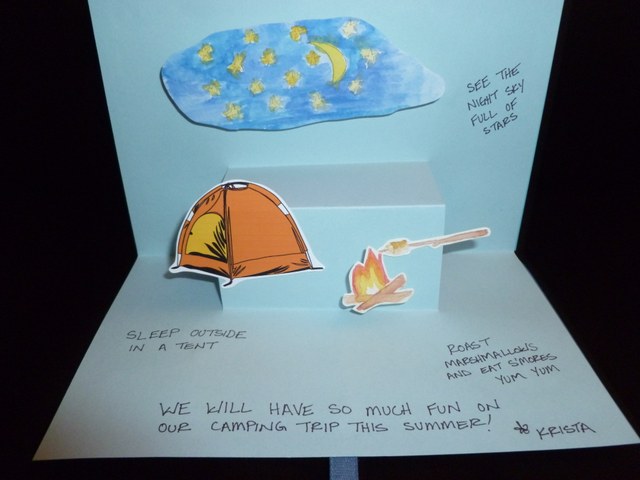 SEE THE
NIGHT SKY
FULL OF
STARS
SLEEP OUTSIDE
IN A TENT
ROAST
MARSHMALLOWS
AND EAT S'MORES
YUM YUM
WE WILL HAVE SO MUCH FUN ON
OUR CAMPING TRIP THIS SUMMER!
KRISTA